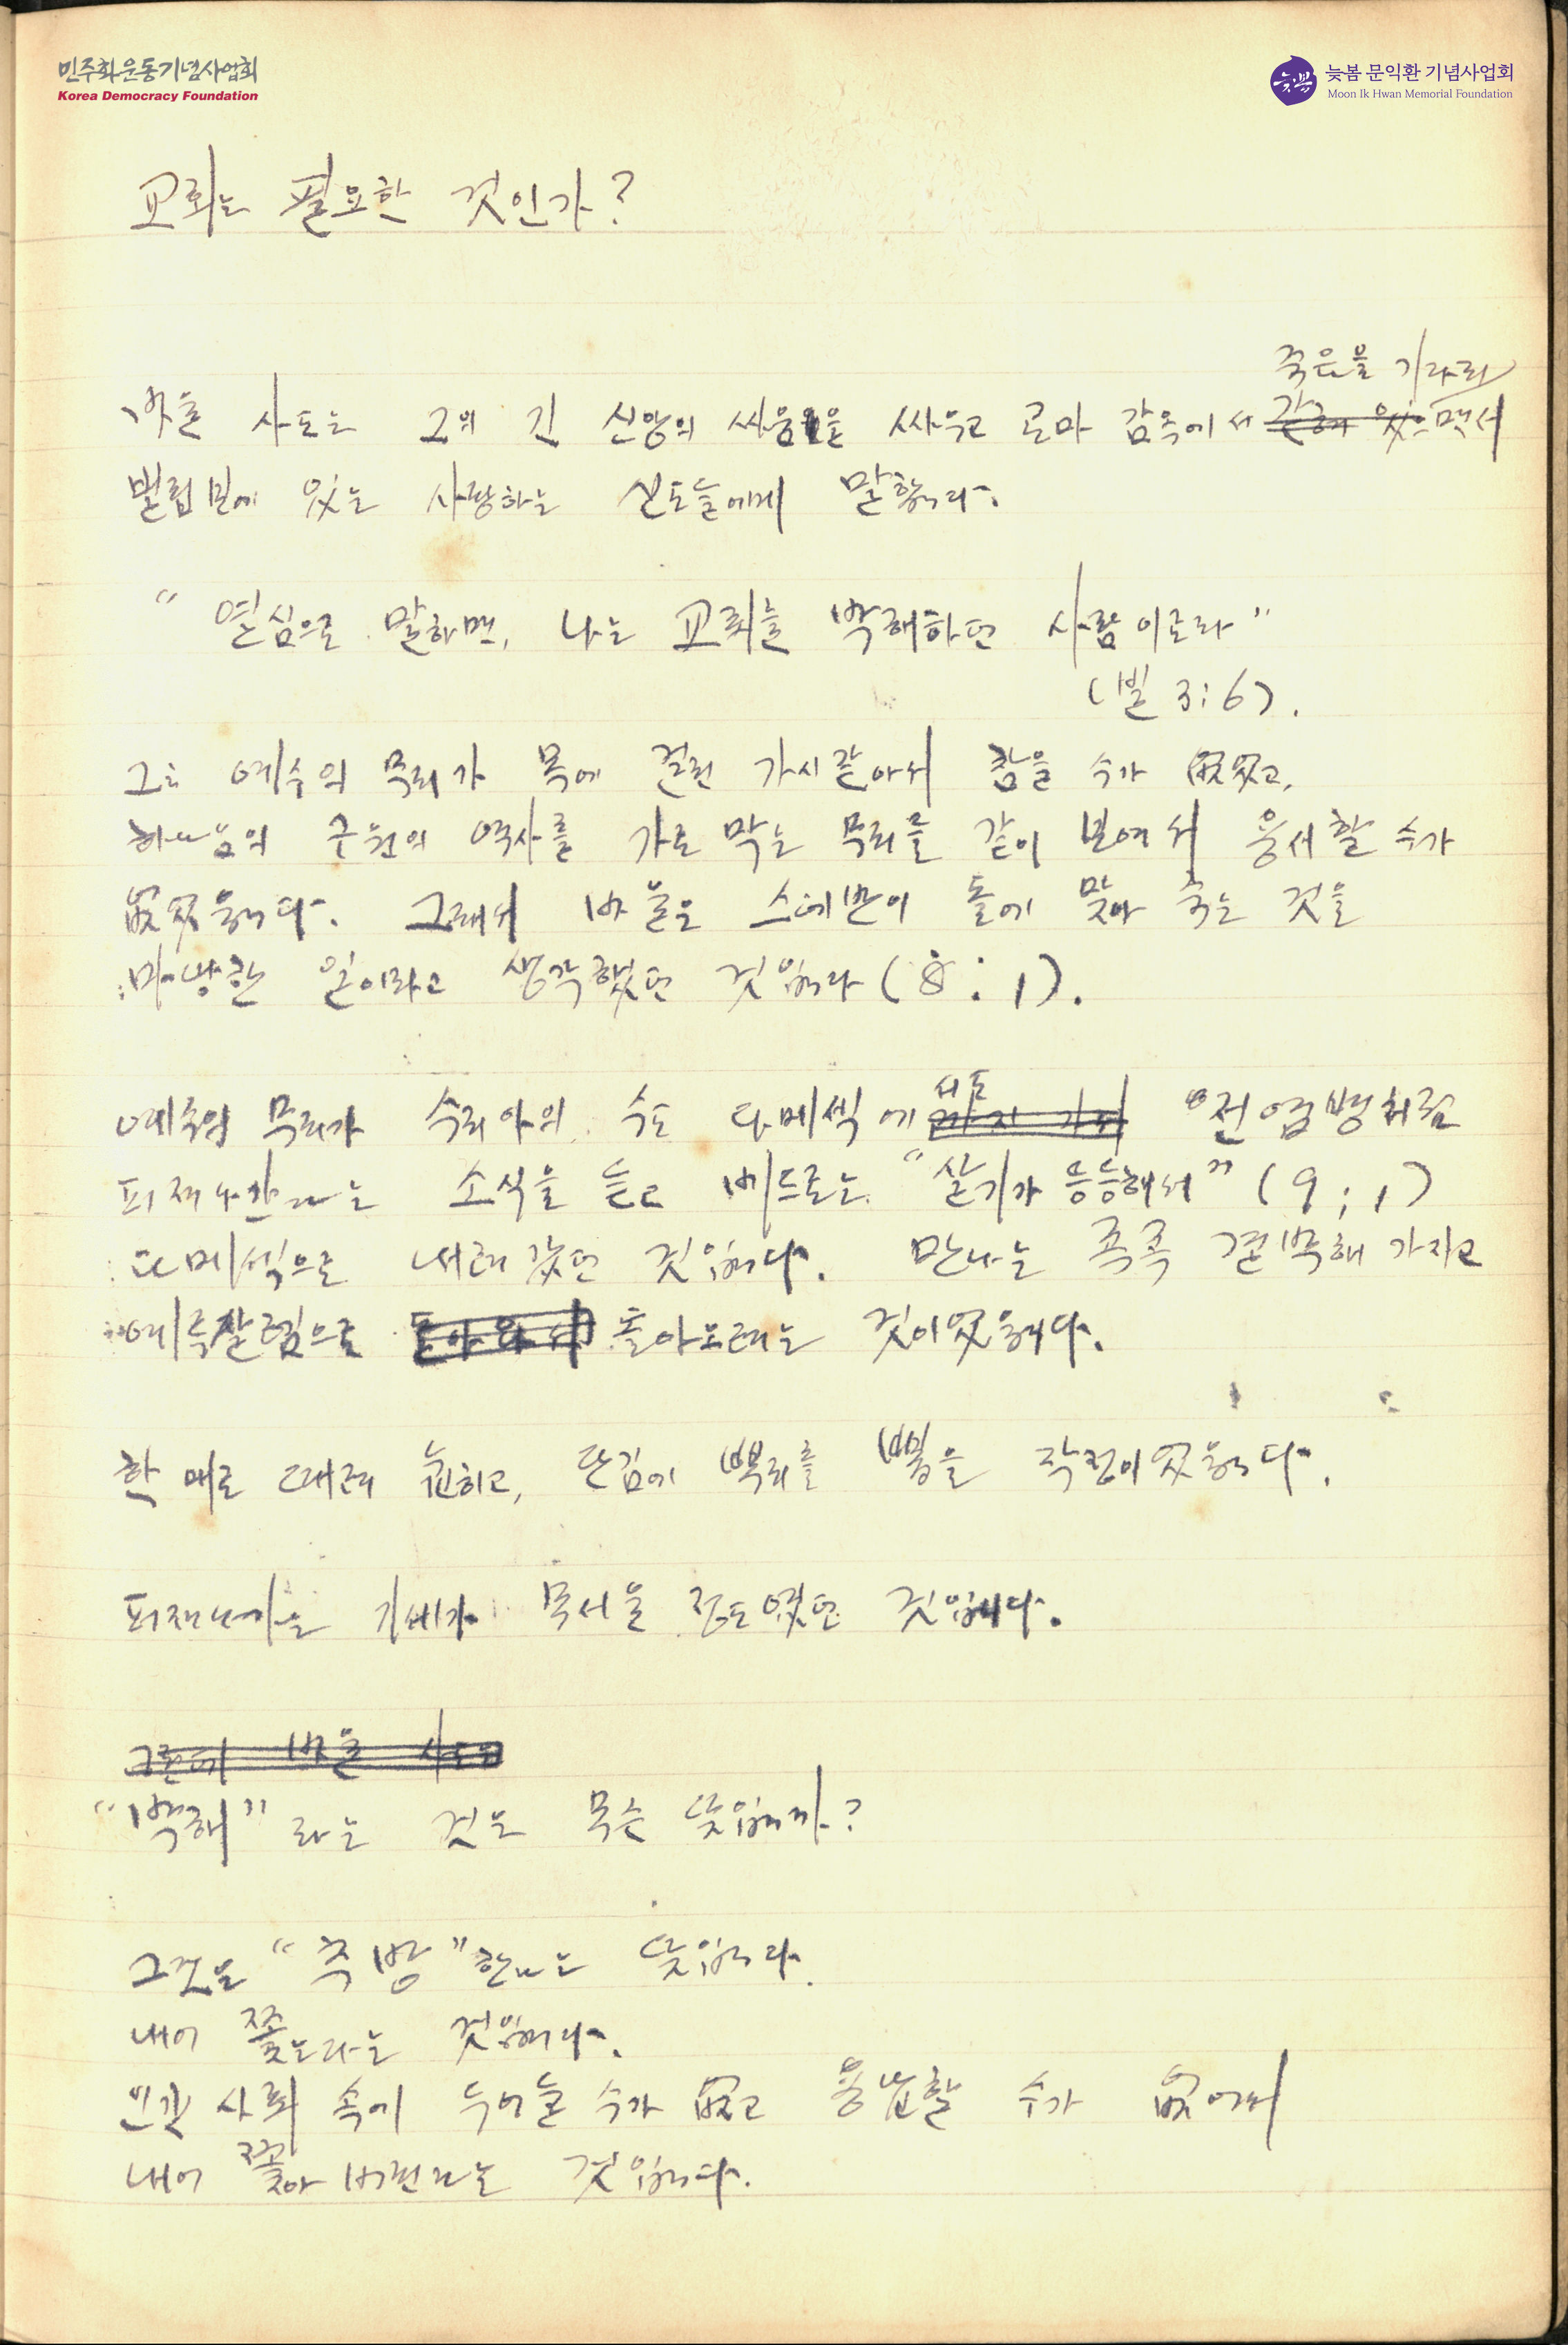 민주화운동기념사업회
Korea Democracy Foundation
늦봄 문익환 기념사업회
Moon Ik Hwan Memorial Foundation
교회는 필요한 것인가?
죽음을 기다리
바울 사도는 그의 긴 신앙의 싸움을 싸우고 로마 감옥에서 갇혀 있으면서
빌립보에 있는 사랑하는 신도들에게 말합니다.
"열심으로 말하면, 나는 교회를 박해하던 사람이로라"
(빌 3:6).
그는 예수의 무리가 목에 걸린 가시같아서 참을 수가 없었고,
하나님의 구원의 역사를 가로 막는 무리들 같이 보여서 용서할 수가
없었읍니다. 그래서 바울은 스데반이 돌에 맞아 죽는 것을
마땅한 일이라고 생각했던 것입니다 (8:1).
예수의 무리가 수리아의 수도 다메섹에 까지 가서 "전염병처럼
서도
퍼져나간다는 소식을 듣고 베드로는 "살기가 등등해서" (9:1)
다메섹으로 내려갔던 것입니다. 만나는 족족 결박해 가지고
예루살렘으로 돌아와서 돌아오려는 것이었읍니다.
한 매로 때려 눕히고, 단김에 뿌리를 뽑을 작정이었읍니다.
퍼져나가는 기세가 무서울 정도였던 것입니다.
그런데 바울 사도의
"박해"라는 것은 무슨 뜻입니까?
그것은 "추방"한다는 뜻입니다.
내어 쫓는다는 것입니다.
인간 사회 속에 두어둘 수가 없고 용납할 수가 없어서
내어 쫓아 버린다는 것입니다.